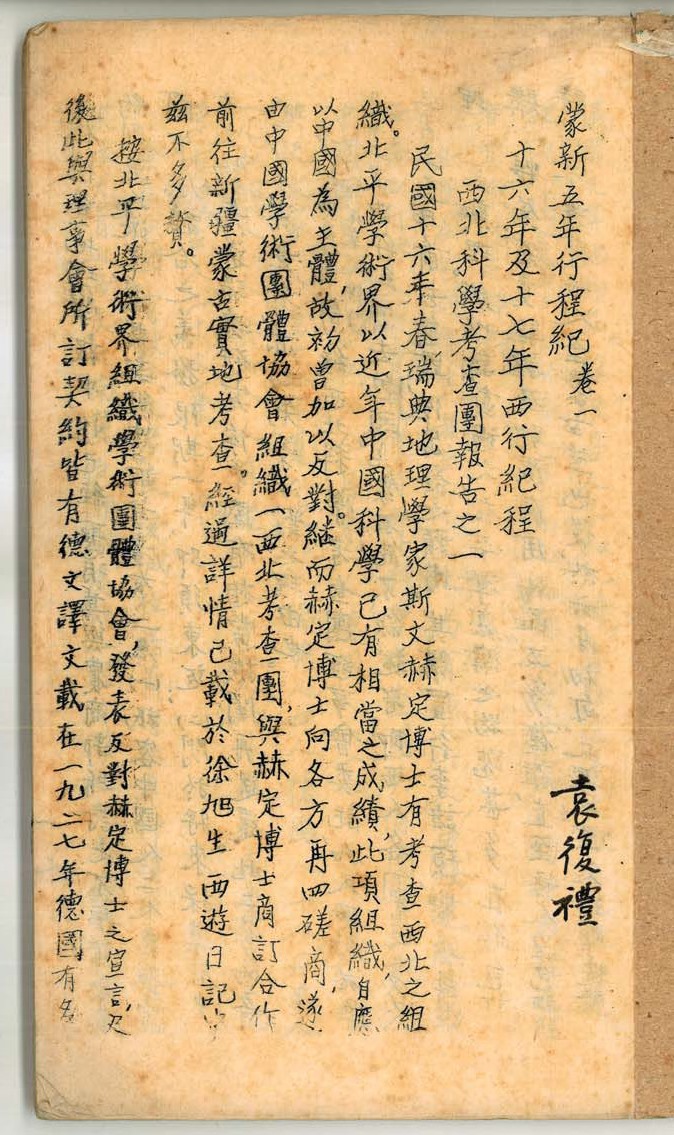 蒙新五年行程紀 卷一
袁復禮
十六年及十七年西行紀程
西北科學考查團報告之一
民國十六年春，瑞典地理學家斯文赫定博士有考查西北之組
織。北平學術界以近年中國科學已有相當之成績，此項組織，自應
以中國為主體，故初曾加以反對。繼而赫定博士向各方再四磋商，遂
由中國學術團體協會組織一西北考查團，與赫定博士商訂合作
前往新疆蒙古實地考查。經過詳情已載於徐旭生西遊日記中
茲不多贅。
按北平學術界組織學術團體協會，發表反對赫定博士之宣言，及
後此與理事會所訂契約皆有德文譯文載在一九二七年德國有名